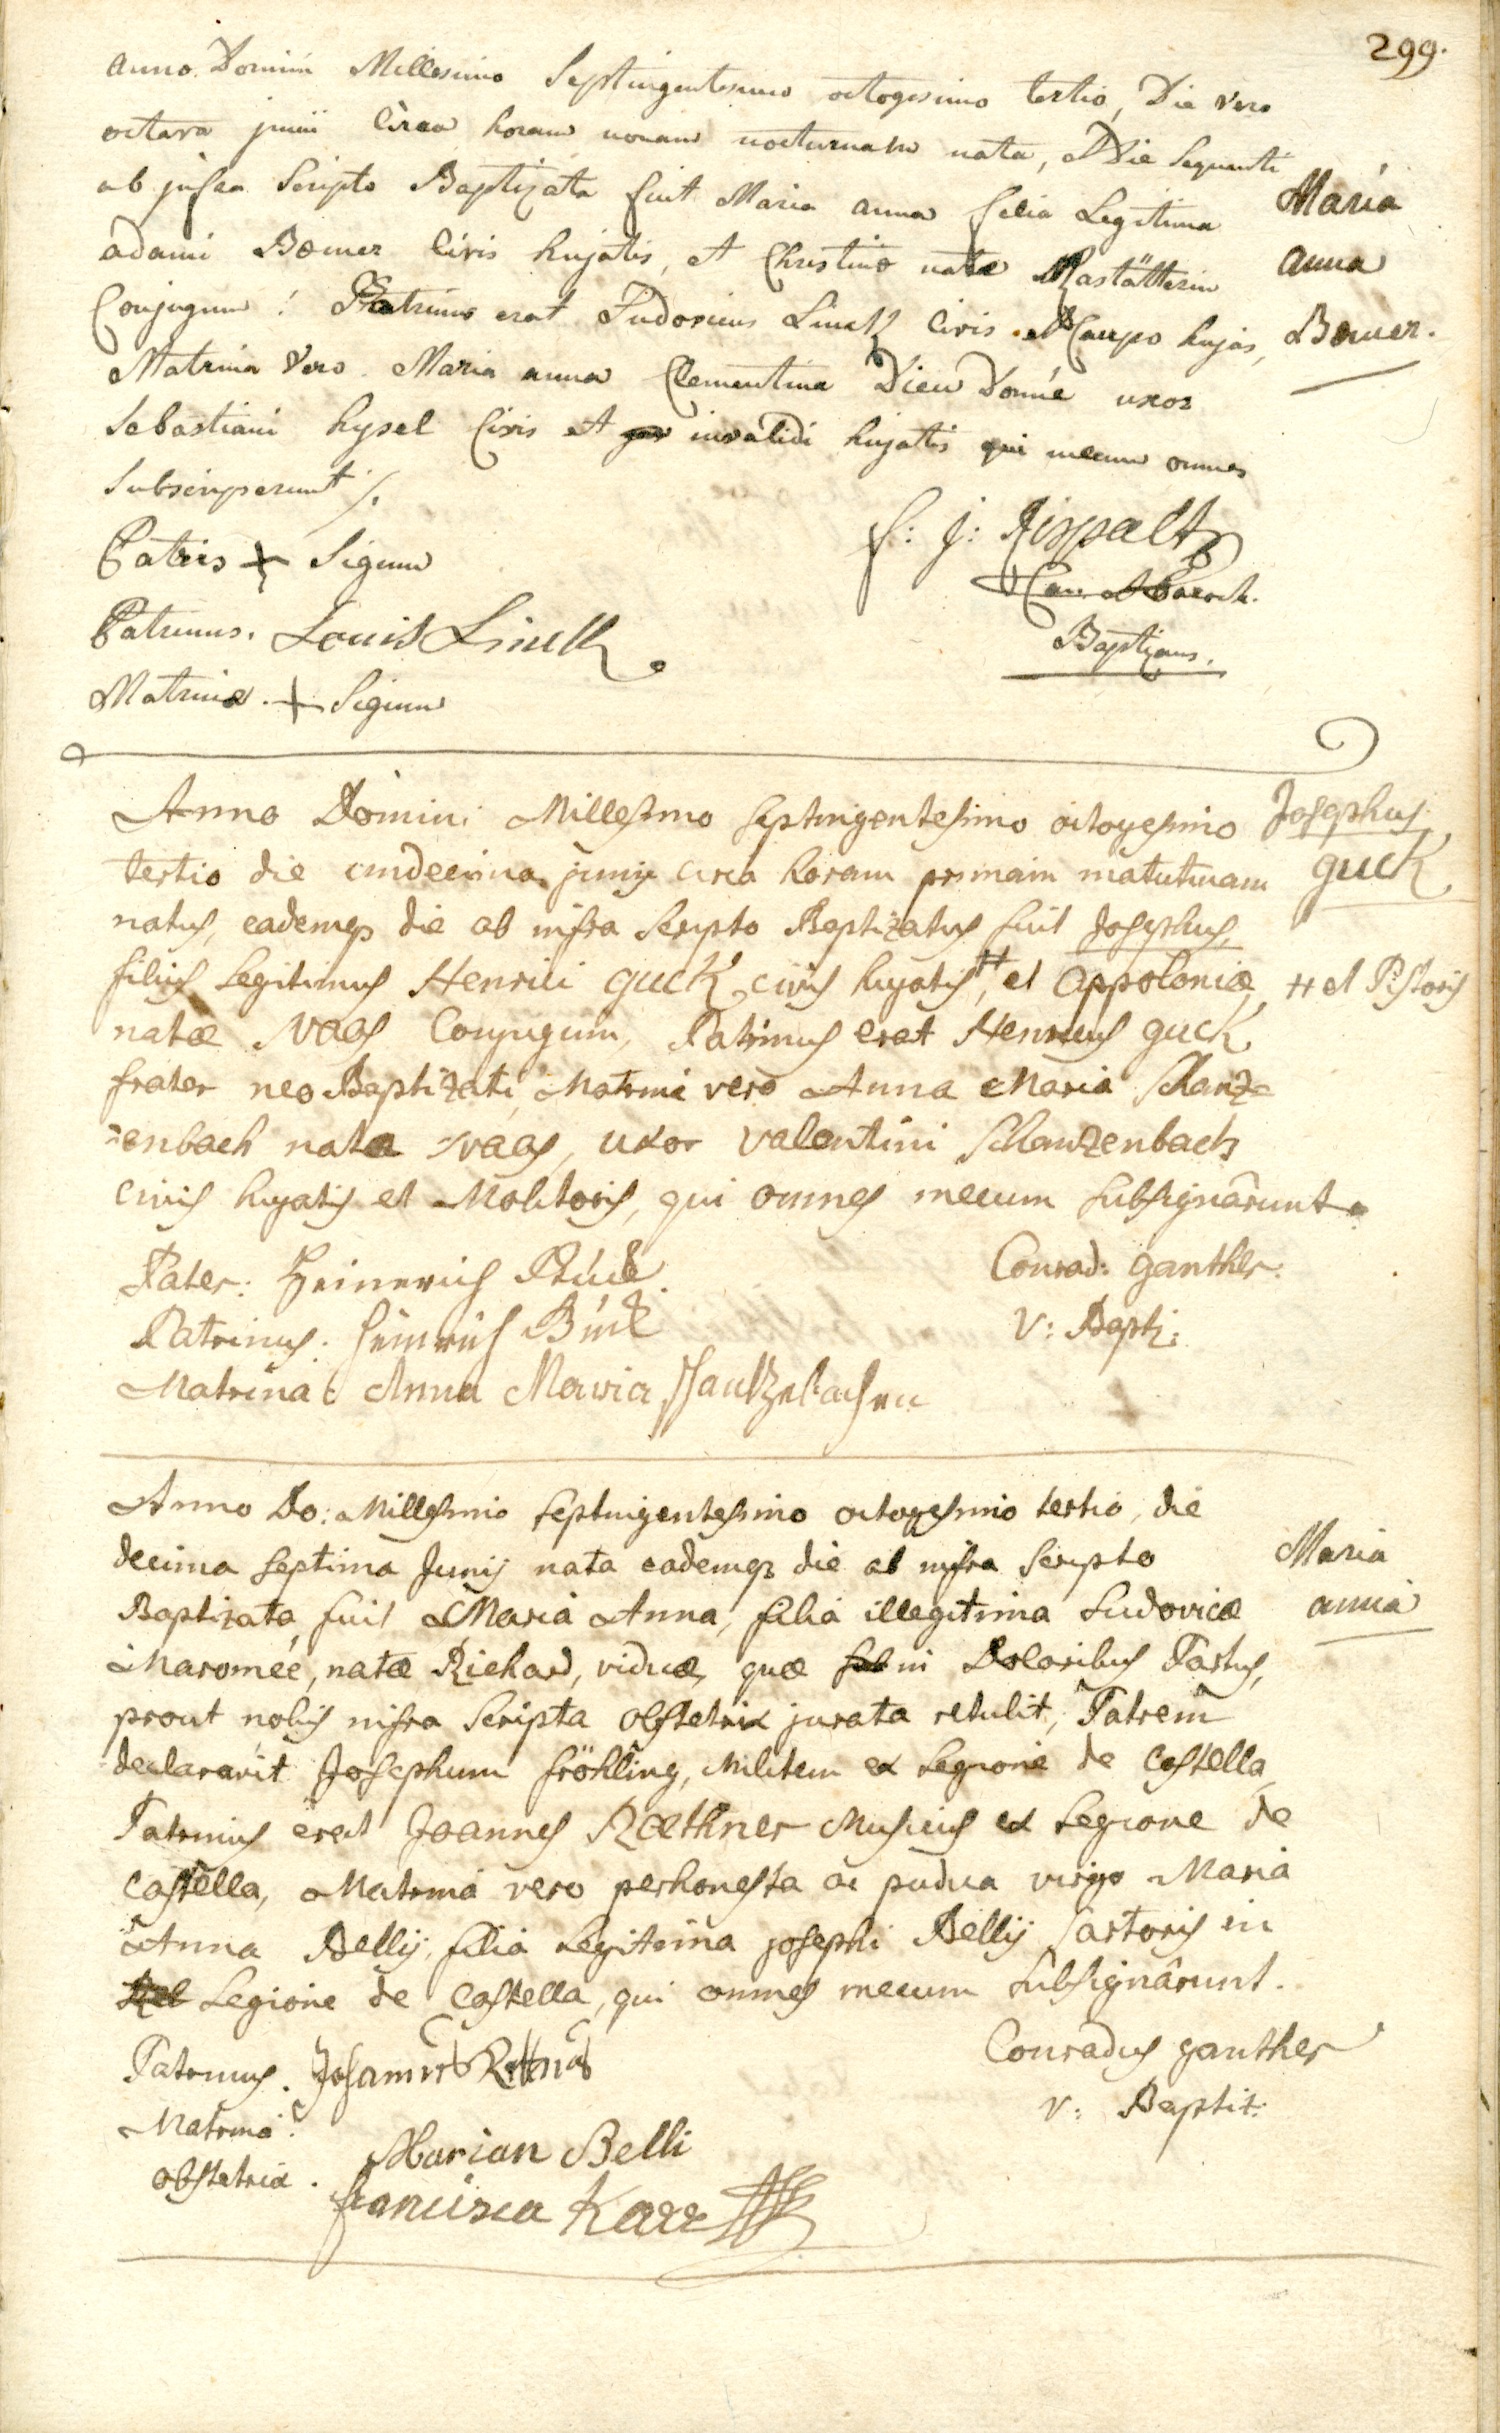 299.
anno Domini Millesimo Septingentesimo octogesimo tertio, Die vero
octava junii Circa horam nonam nocturnam nata, et Die Sequenti
ab infra Scripto Baptizata fuit Maria anna filia Legitima
adami Bemer Civis hujatis, et Christinæ natæ Rastätterin
Conjugum! Patrinus erat Ludovicus Linck Civis et Caupo hujas,
Matrina vero Maria anna Clementina Dieu Donné uxor
Sebastiani hysel Civis et invalidi hujatis qui mecum omnes
Subscripserunt /.
Maria
anna
Bemer.
Patris + Signum
Patrinus. Louis Linck
Matrinæ. + Signum
f: j: Rispalt
Can. et Paroch.
Baptizans.
Anno Domini Millesimo septingentesimo octogesimo
tertio die undecima junij circa horam primam matutinam
natus, eademq die ab infra scripto Baptizatus fuit Josephus,
filius Legitimus Henrici guck civis hujatis ++, et Appoloniæ
natæ Waas Conjugum, Patrinus erat Henricus guck
frater neo Baptizati, Matrina vero Anna Maria Schanz-
-enbach nata Waas, uxor Valentini Schanzenbach
civis hujatis et Molitoris, qui omnes mecum subsignârunt.
Josephus
guck
++ et Pistoris
Pater: Heinerich
Patrinus: Heinrich
Matrina: Anna Maria
Conrad: ganther.
V: Bapti:
Anno Do: Millesimo septingentesimo octogesimo tertio, die
decima septima Junij nata eademq die ab infra scripto
Baptizata fuit Maria Anna, filia illegitima Ludovicæ
Maromeé, natæ Richard, viduæ, quæ in Doloribus Partus,
prout nobis infra scripta obstetrix jurata retulit, Patrem
declaravit Josephum fröhling, Militem ex Legione de Castella
Patrinus erat Joannes Ræthner Musicus ex Legione de
Castella, Matrina vero perhonesta ac pudica virgo Maria
Anna Bellij, filia Legitima josephi Bellij Sartoris in
Legione de Castella, qui omnes mecum subsignârunt.
Maria
anna
Patrinus. Johannes
Matrina: Marian Belli
obstetrix. francisca Karr
Conradus ganther
v: Baptit: